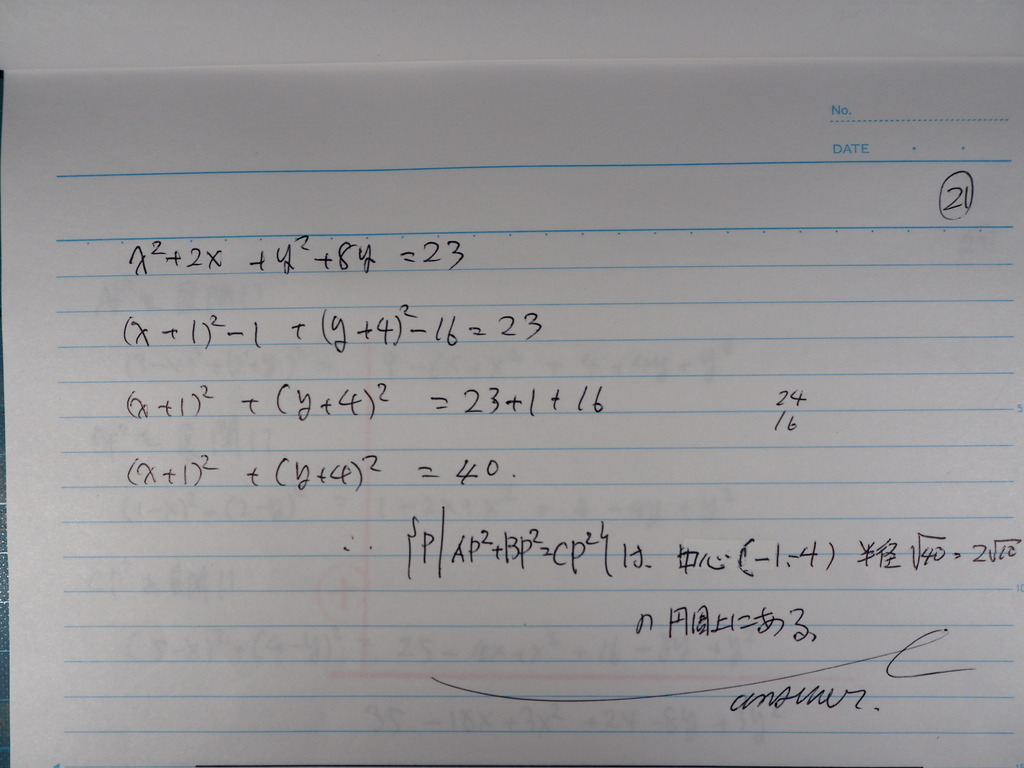 No.
DATE
21
x²+2x +y²+8y =23
(x+1)²-1 +(y+4)²-16=23
(x+1)² +(y+4)² =23+1+16
24
16
(x+1)² +(y+4)² =40.
∴ {P|AP²+BP²=CP²}は、中心(-1,-4) 半径√40=2√10
の円周上にある。
answer.